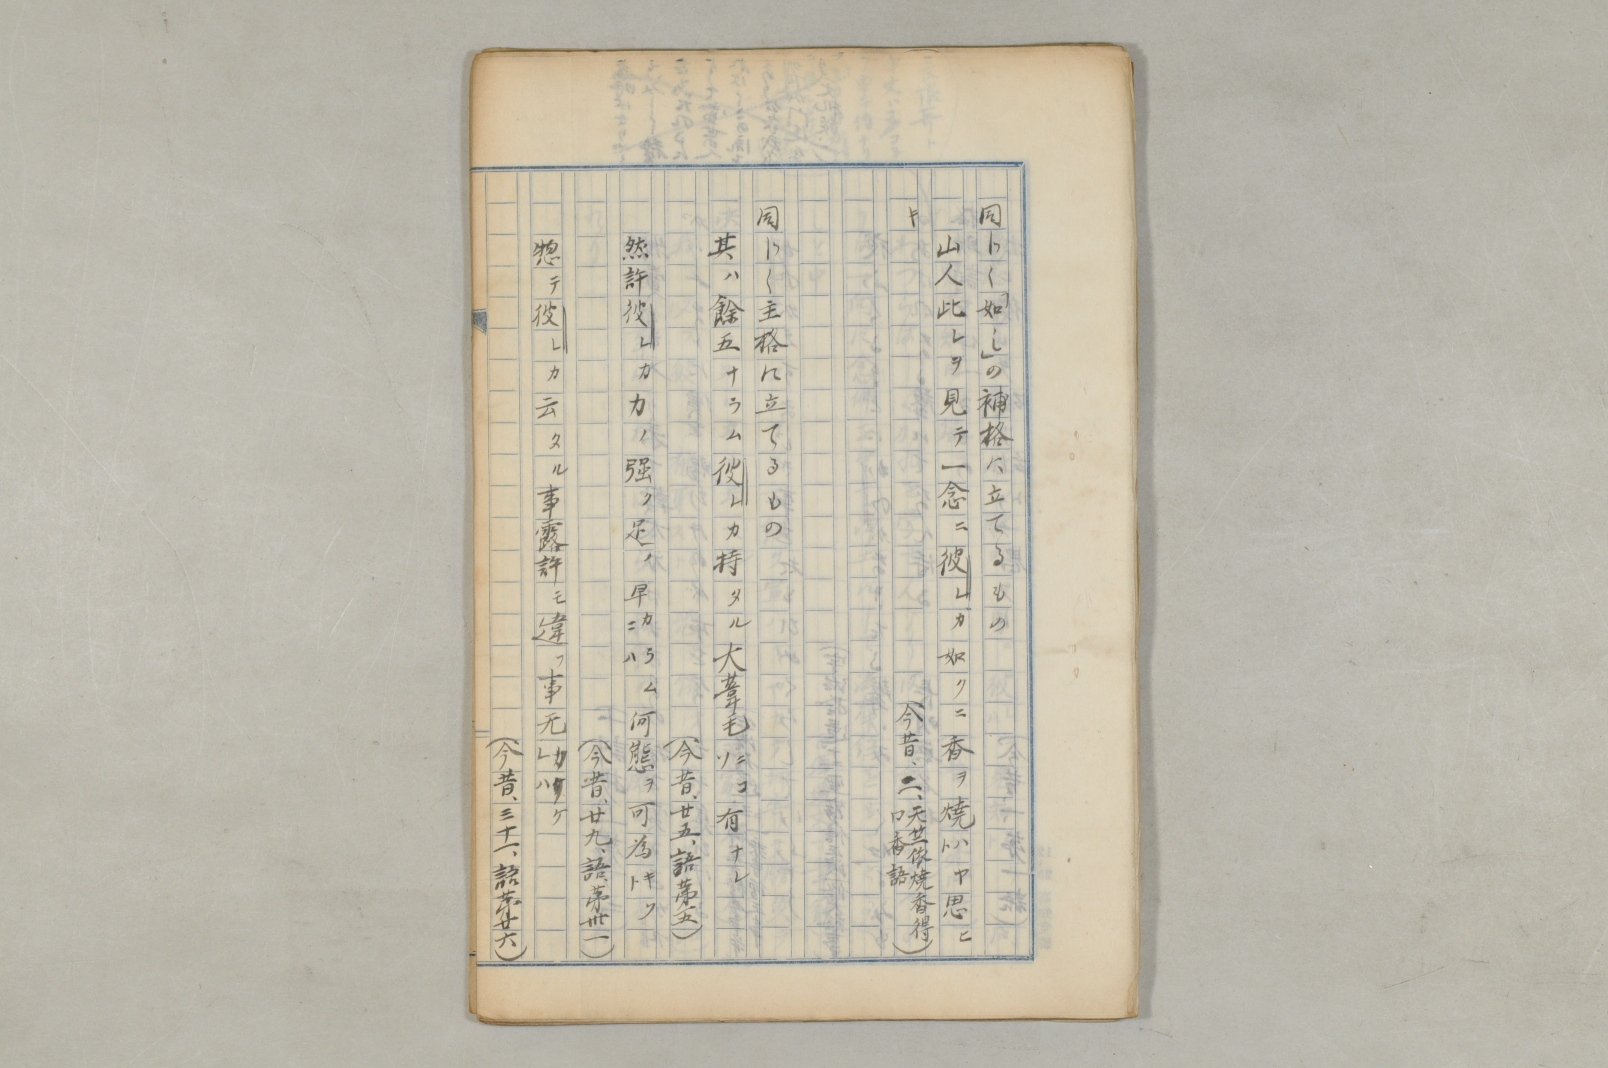 同じく「如し」の補格に立てるもの
山人此レヲ見テ一念ニ彼レガ如クニ香ヲ燒ハヤト思ヒ
キ
（今昔、二、天竺依燒香得口香語）
同じく主格に立てるもの
其ハ餘五ナラム彼レカ特タル大葦毛ニコソ有ナレ
（今昔、廿五、語第五）
然許彼レカ力ノ强ク足ノ早カラムニハ何態ヲ可為キソト
（今昔、廿九、語、第卅一）
惣テ彼レカ云タル事露許モ違フ事无カリケレハ
（今昔、三十一、語第廿六）